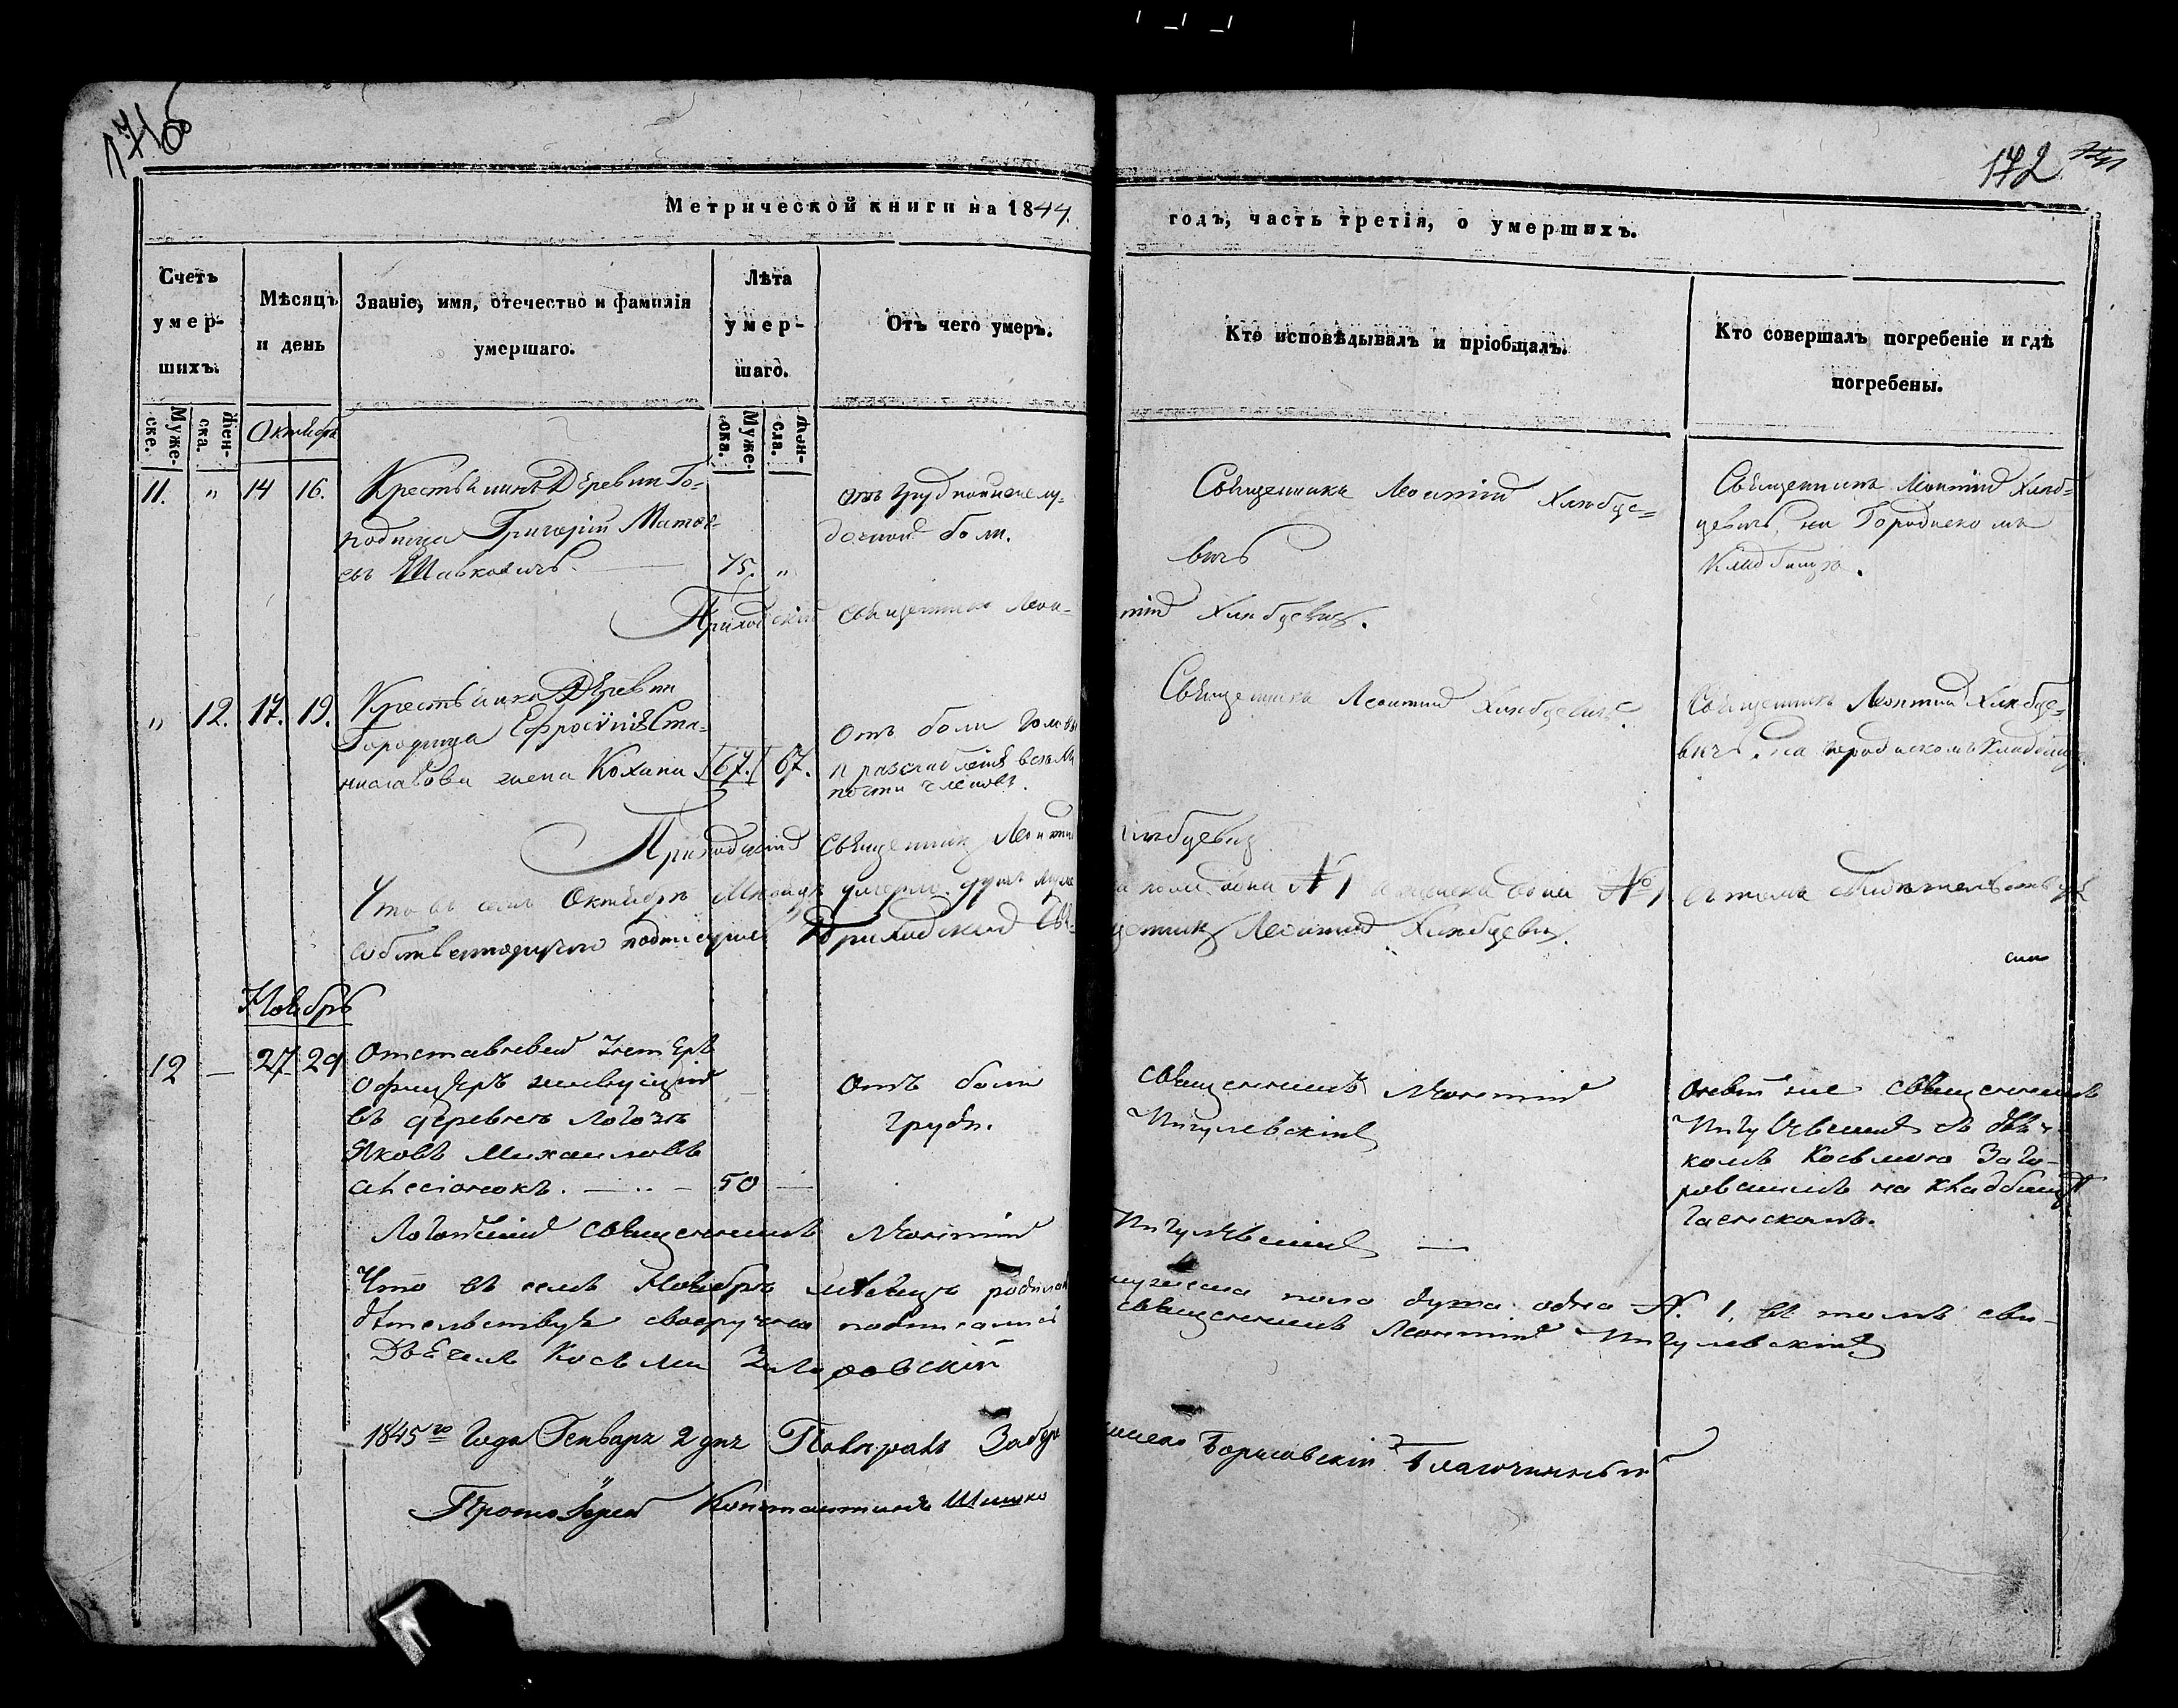 171об
172
Метрической книги на 1844.
годъ, часть третія, о умершихъ.
Счетъ умер-шихъ.
Мѣсяцъ и день
Званіе, имя, отечество и фамилія умершаго.
Лѣта умер-шаго.
Отъ чего умеръ.
Кто исповѣдывалъ и пріобщалъ.
Кто совершалъ погребеніе и гдѣ погребены.
Муже-ске.
Жен-ска.
Октябрь
Муже-ска.
Жен-ска.
11. " 14 16.
Крестьянинъ Деревни Го-
родища Григорій Матѳе-
евъ Шавковичъ.
75. "
отъ грудной и желу-
дочной боли.
Священникъ Леонтій Хлѣбце-
вичъ
Священникъ Леонтій Хлѣб-
цевичъ на Городискомъ
Кладбищѣ.
Приходскій священникъ Леон-
тій Хлѣбцевичъ.
" 12. 17. 19.
Крестьянка Деревни
Городища Ефросинія Ста-
ниславова жена Кохана
67. 67.
Отъ боли Головы
и разслабленія всѣхъ
почти членовъ.
Священникъ Леонтій Хлѣбцевичъ.
Священникъ Леонтій Хлѣбце-
вичъ. на городискомъ кладбищѣ.
Приходскій Священникъ Леонтій
Хлѣбцевичъ
Что въ семъ Октябрѣ Мѣсяцѣ умерло душъ муже
ска пола одна №1 и женска одна №1. въ томъ свидѣтельствую
собственноручно подписуюсь Приходскій Свя-
щенникъ Леонтій Хлѣбцевичъ.
Ноябрь
12 — 27 29
Отставной Унтеръ
офицеръ живущій
въ деревнѣ Логозѣ
Яковъ Михаиловъ
50 —
отъ боли
груди.
священникъ Леонтій
Пигулевскій
оный же священникъ
Пигулевскій съ дья-
комъ Косьмою Заго-
ровскимъ на кладбищѣ
Логозскій священникъ Леонтій
Пигулевскій —
Что въ семъ Ноябрѣ мѣсяцѣ
мужеска пола душа одна №. 1. въ томъ сви-
дѣтельствую своеручно подписаніемъ
священникъ Леонтій Пигулевскій
Дьячекъ Косьма Загоровскій
1845го Года Генваря 2 дня Повѣрялъ
Борисовскій Благочинный
Протоіерей Константинъ